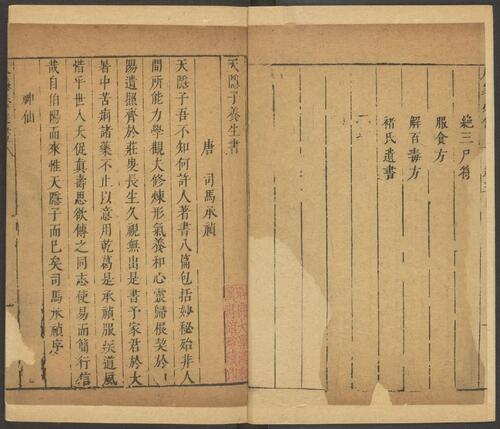 絕三尸符
服食方
解百毒方
褚氏遺書
天隱子養生書
唐 司馬承禎
天隱子吾不知何許人著書八篇包括妙秘殆非人
間所能力學觀夫修煉形氣養和心靈歸根契於
陽遺照齊於莊叟長生久視無出是書予家君於大
暑中苦痢諸藥不止以意用乾葛是承禎服疾道風
惜乎世人夭促真壽思欲傳之同志使易而簡行信
哉自伯陽而來惟天隱子而已矣司馬承禎序
神仙